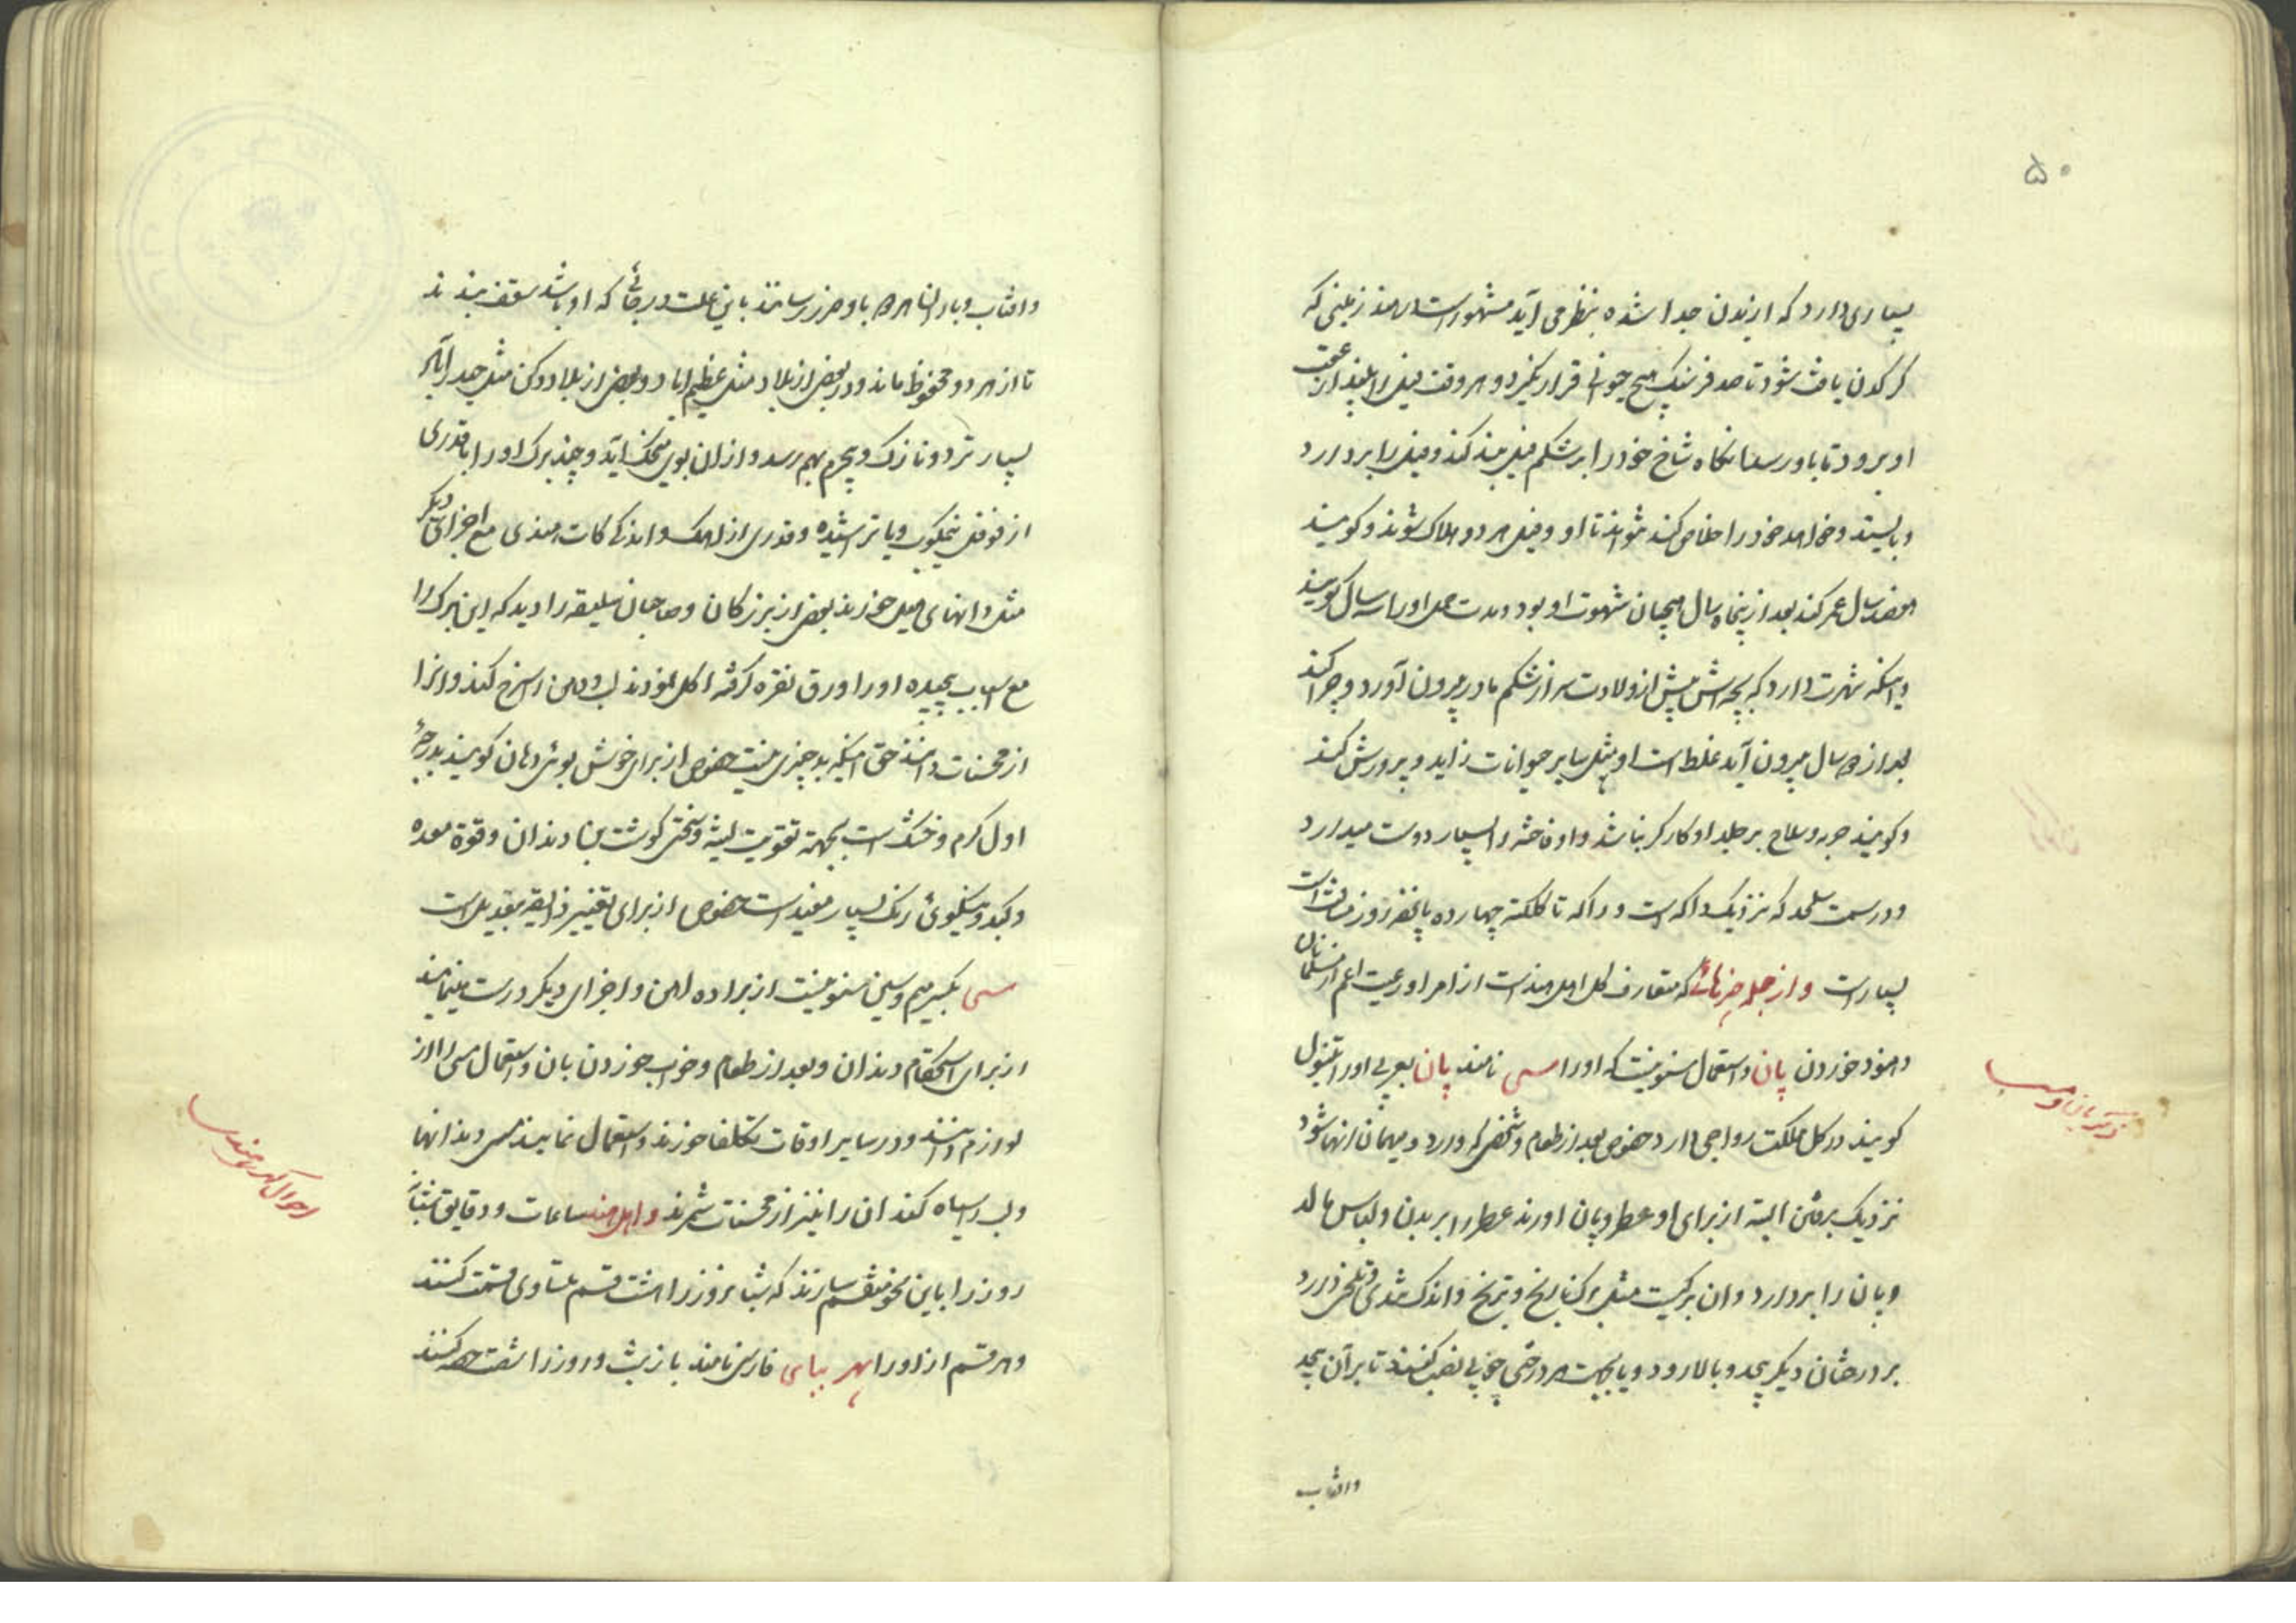 ۵۰
بسیاری دارد که از بدن جدا شده بنظر می آید مشهور است در هند زمینی که
کرکدن یافت شود تا صد فرسنک هیچ حیوانی قرار نکیرد و هر وقت فیل را بیند از عقب
او برود تا باو رسد انکاه شاخ خود را بر شکم فیل بند کند و فیل را بردارد
و بایستد و خواهد خود را خلاص کند نتواند تا او و فیل هر دو هلاک شوند و کویند
هفتصد سال عمر کند بعد از پنجاه سال هیجان شهوت او بود و مدت حمل او را سه سال کویند
و اینکه شهرت دارد که بچه اش پیش از ولادت سر از شکم مادر بیرون آورد و چرا کند
بعد از سال بیرون آید غلط است او مثل سایر حیوانات زاید و پرورش کند
و کویند حربه و سلاح بر جلد او کارکر نباشد و او فاخته را بسیار دوست میدارد
و در سمت سلهت که نزدیک داکه است و داکه تا کلکته چهارده پانزده روز مسافت است
بسیار است و از جمله چیزهائی که متعارف کل اهل هند است از امرا و رعیت اعم از مسلمانان
و هنود خوردن پان و استعمال سنونیست که او را مسی نامند پان بعربی او را تنبول
کویند در کل مملکت رواجی دارد خصوص بعد از طعام و شخصی که وارد و میهمان انها شود
نزدیک برفتن البته از برای او عطر و پان اورند عطر را بر بدن و لباس مالد
و پان را بردارد و ان برکیست مثل برک نارنج و ترنج و اندک تندی و تلخی دارد
بر درختان دیکر پیچد و بالا رود و یا بجهت هر درختی چوبی نصب کنند تا بر آن پیچد
و افتاب
ذکر پان و مسی
و افتاب و باران هر دو باو ضرر رسانند باین علت در جائی که او باشد سقف بندند
تا از هر دو محفوظ ماند و در بعضی از بلاد مثل عظیم اباد و بعضی از بلاد دکن مثل حیدرآباد
بسیار ترد و نازک و پجرم بهم رسد و از ان بوی میخک آید و چند برک او را با قدری
از فوفل نیمکوب و یا تراشیده و قدری از اهک و اندکی کات هندی مع اجزای دیکر
مثل دانهای هیل خورند بعضی از بزرکان و صاحبان سلیقه را دیدم که این برک را
مع اسباب پیچیده او را ورق نقره کرفته اکل نمودند لب و دهن را سرخ کند و انرا
از محسنات دانند حق اینکه بد چیزی نیست خصوص از برای خوش بوئی دهان کویند بدرجهٔ
اول کرم و خشک است بجهة تقویت لثه و سختی کوشت بن دندان و قوة معده
و کبد و نیکوئی رنک بسیار مفید است خصوص از برای تغییر ذایقه بیعدیل است
مسی بکسر میم و سین سنونیست از براده اهن و اجزای دیکر درست مینمایند
از برای استحکام دندان و بعد از طعام و خواب خوردن پان و استعمال مسی را از
لوازم دانند و در سایر اوقات تکلفا خورند و استعمال نمایند مسی دندانها
و لب را سیاه کند ان را نیز از محسنات شمرند و اهل هند ساعات و دقایق شبا
روز را باین نحو منقسم سازند که شبانروز را هشت قسم متساوی قسمت کنند
و هر قسم از او را پهر ببای فارسی نامند باز شب و روز را شصت حصه کنند
احوال کهری هند